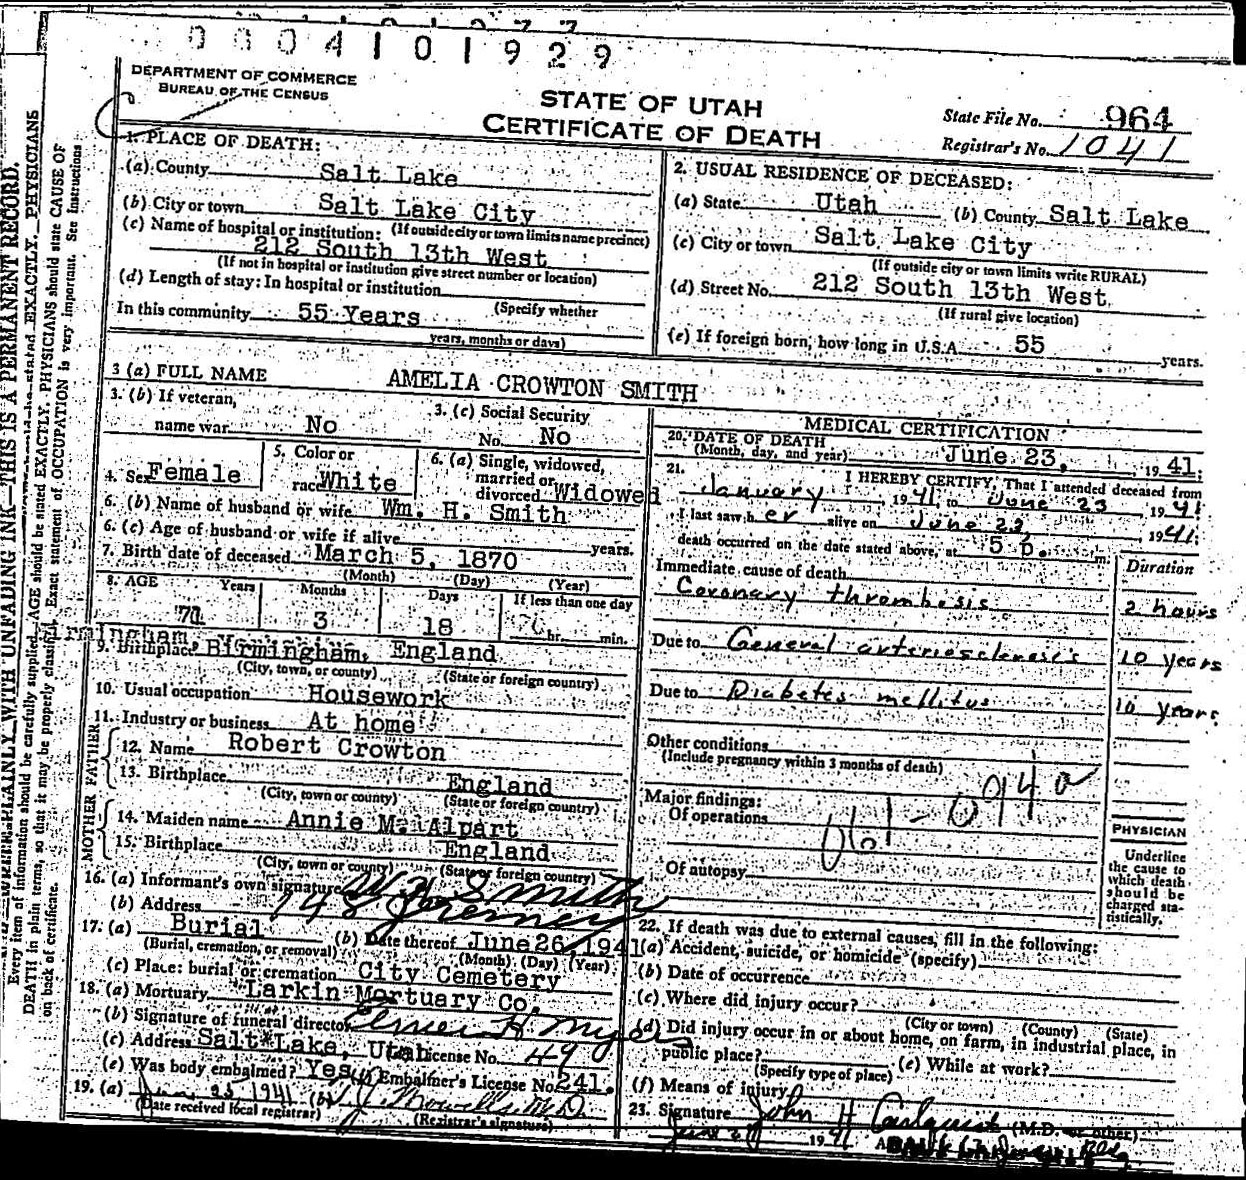 0004101929
DEPARTMENT OF COMMERCE
BUREAU OF THE CENSUS
STATE OF UTAH
CERTIFICATE OF DEATH
State File No. 964
Registrar's No. 1041
1. PLACE OF DEATH:
(a) County Salt Lake
(b) City or town Salt Lake City
(c) Name of hospital or institution: (If outside city or town limits name precinct)
212 South 13th West
(If not in hospital or institution give street number or location)
(d) Length of stay: In hospital or institution
(Specify whether
In this community 55 Years
years, months or days)
2. USUAL RESIDENCE OF DECEASED:
(a) State Utah (b) County Salt Lake
(c) City or town Salt Lake City
(If outside city or town limits write RURAL)
(d) Street No. 212 South 13th West
(If rural give location)
(e) If foreign born, how long in U.S.A. 55 years.
3 (a) FULL NAME AMELIA CROWTON SMITH
3. (b) If veteran,
name war No
3. (c) Social Security
No. No
4. Sex Female
5. Color or
race White
6. (a) Single, widowed,
married or
divorced Widowed
6. (b) Name of husband or wife Wm. H. Smith
6. (c) Age of husband or wife if alive years.
7. Birth date of deceased March 5, 1870
(Month) (Day) (Year)
8. AGE Years Months Days If less than one day
71 3 18 hr. min.
9. Birthplace Birmingham, England
(City, town, or county) (State or foreign country)
10. Usual occupation Housework
11. Industry or business At home
FATHER
12. Name Robert Crowton
13. Birthplace England
(City, town or county) (State or foreign country)
MOTHER
14. Maiden name Annie M. Alpart
15. Birthplace England
(City, town or county) (State or foreign country)
16. (a) Informant's own signature Smith
(b) Address 148
17. (a) Burial (b) Date thereof June 26, 1941
(Burial, cremation, or removal) (Month) (Day) (Year)
(c) Place: burial or cremation City Cemetery
18. (a) Mortuary Larkin Mortuary Co.
(b) Signature of funeral director Elmer H. Myers
(c) Address Salt Lake, Utah License No. 49
(e) Was body embalmed? Yes Embalmer's License No. 241.
19. (a) 25, 1941 (b) M.D.
(Date received local registrar) (Registrar's signature)
MEDICAL CERTIFICATION
20. DATE OF DEATH
(Month, day, and year) June 23, 1941;
21. I HEREBY CERTIFY, That I attended deceased from
January 1941 to June 23 1941
I last saw her alive on June 23, 1941;
death occurred on the date stated above, at 5 p. m.
Immediate cause of death Duration
Coronary thrombosis 2 hours
Due to General arteriosclerosis 10 years
Due to Diabetes mellitus 10 years.
Other conditions
(Include pregnancy within 3 months of death)
Major findings:
Of operations
061-094a
Of autopsy
PHYSICIAN
Underline
the cause to
which death
should be
charged sta-
tistically.
22. If death was due to external causes, fill in the following:
(a) Accident, suicide, or homicide (specify)
(b) Date of occurrence
(c) Where did injury occur?
(City or town) (County) (State)
(d) Did injury occur in or about home, on farm, in industrial place, in
public place? (e) While at work?
(Specify type of place)
(f) Means of injury
23. Signature John H Carlquist (M.D. or other)
1941 Bldg
PLAINLY, WITH UNFADING INK—THIS IS A PERMANENT RECORD.
Every item of information should be carefully supplied. AGE should be stated EXACTLY. PHYSICIANS should state CAUSE OF
DEATH in plain terms, so that it may be properly classified. Exact statement of OCCUPATION is very important. See Instructions
on back of certificate.